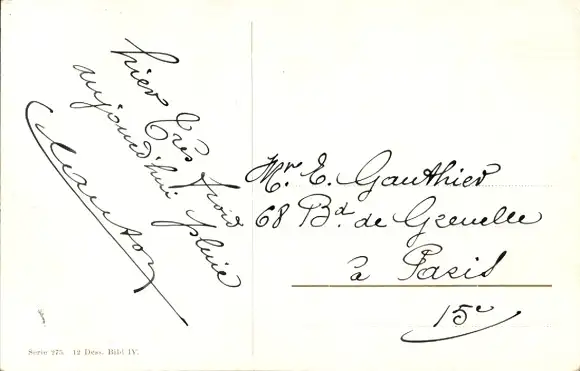 hier très froid
aujourd'hui pluie
Mr. E. Gauthier
68 Bd. de Grenelle
à Paris
15e
Serie 275. 12 Dess. Bild IV.